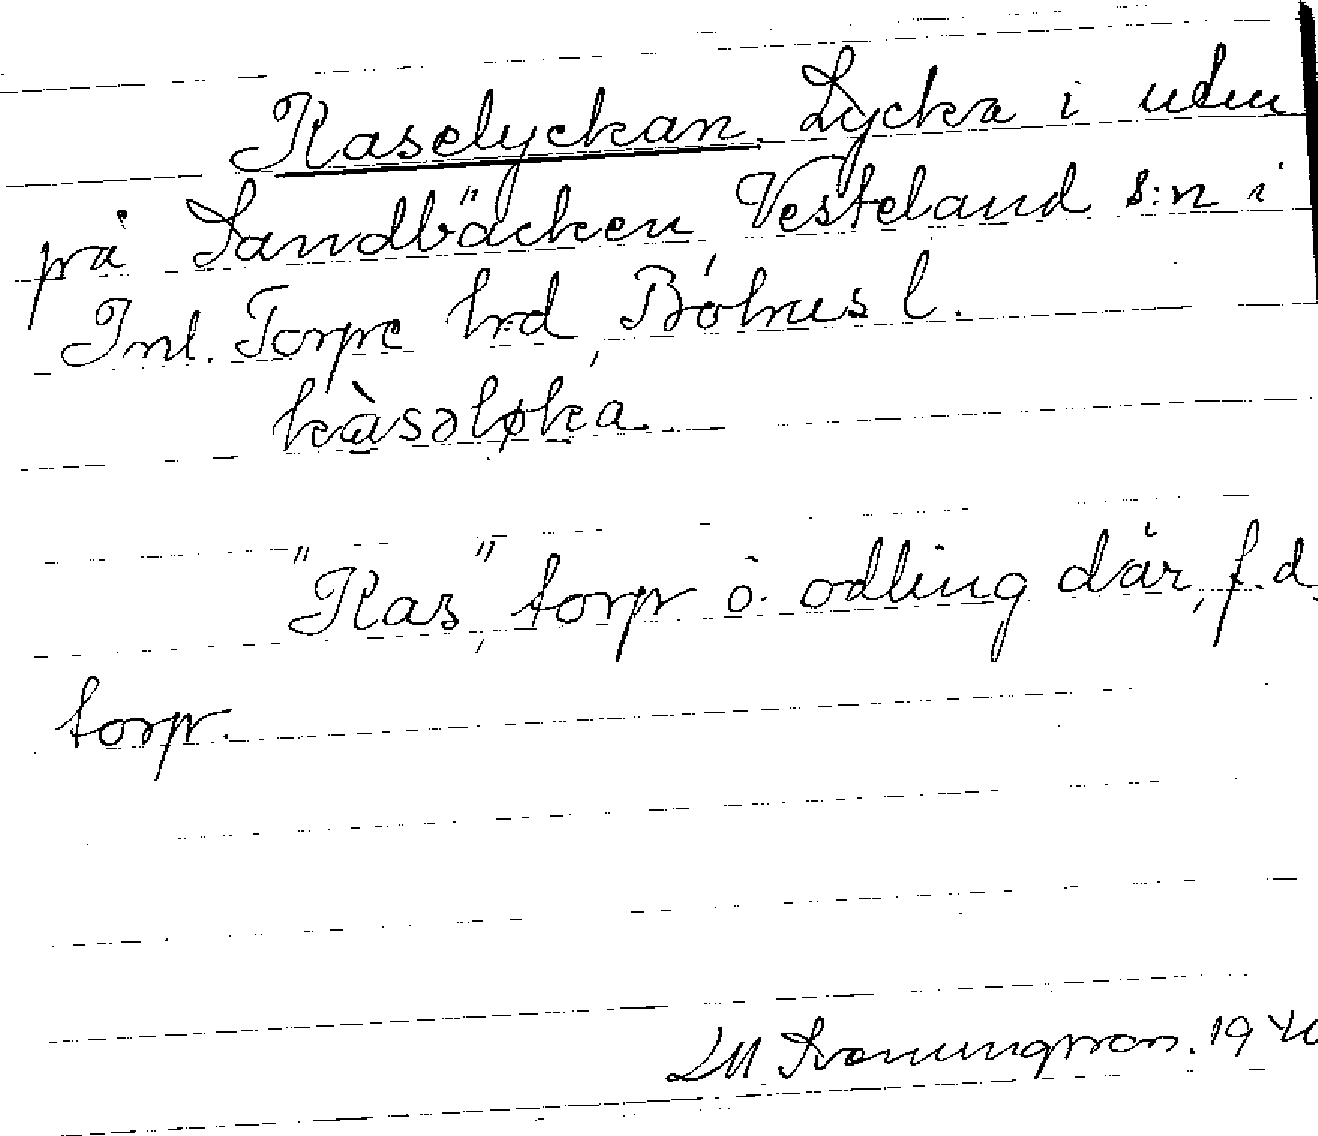 Kaselyckan. Lycka i
på Sandbäcken, Vesteland s:n i
Inl. Torpe hrd, Bohus l.
kàsəløka
"Kas", torp o. odling där, f.d.
torp.
LM Svenungsson.